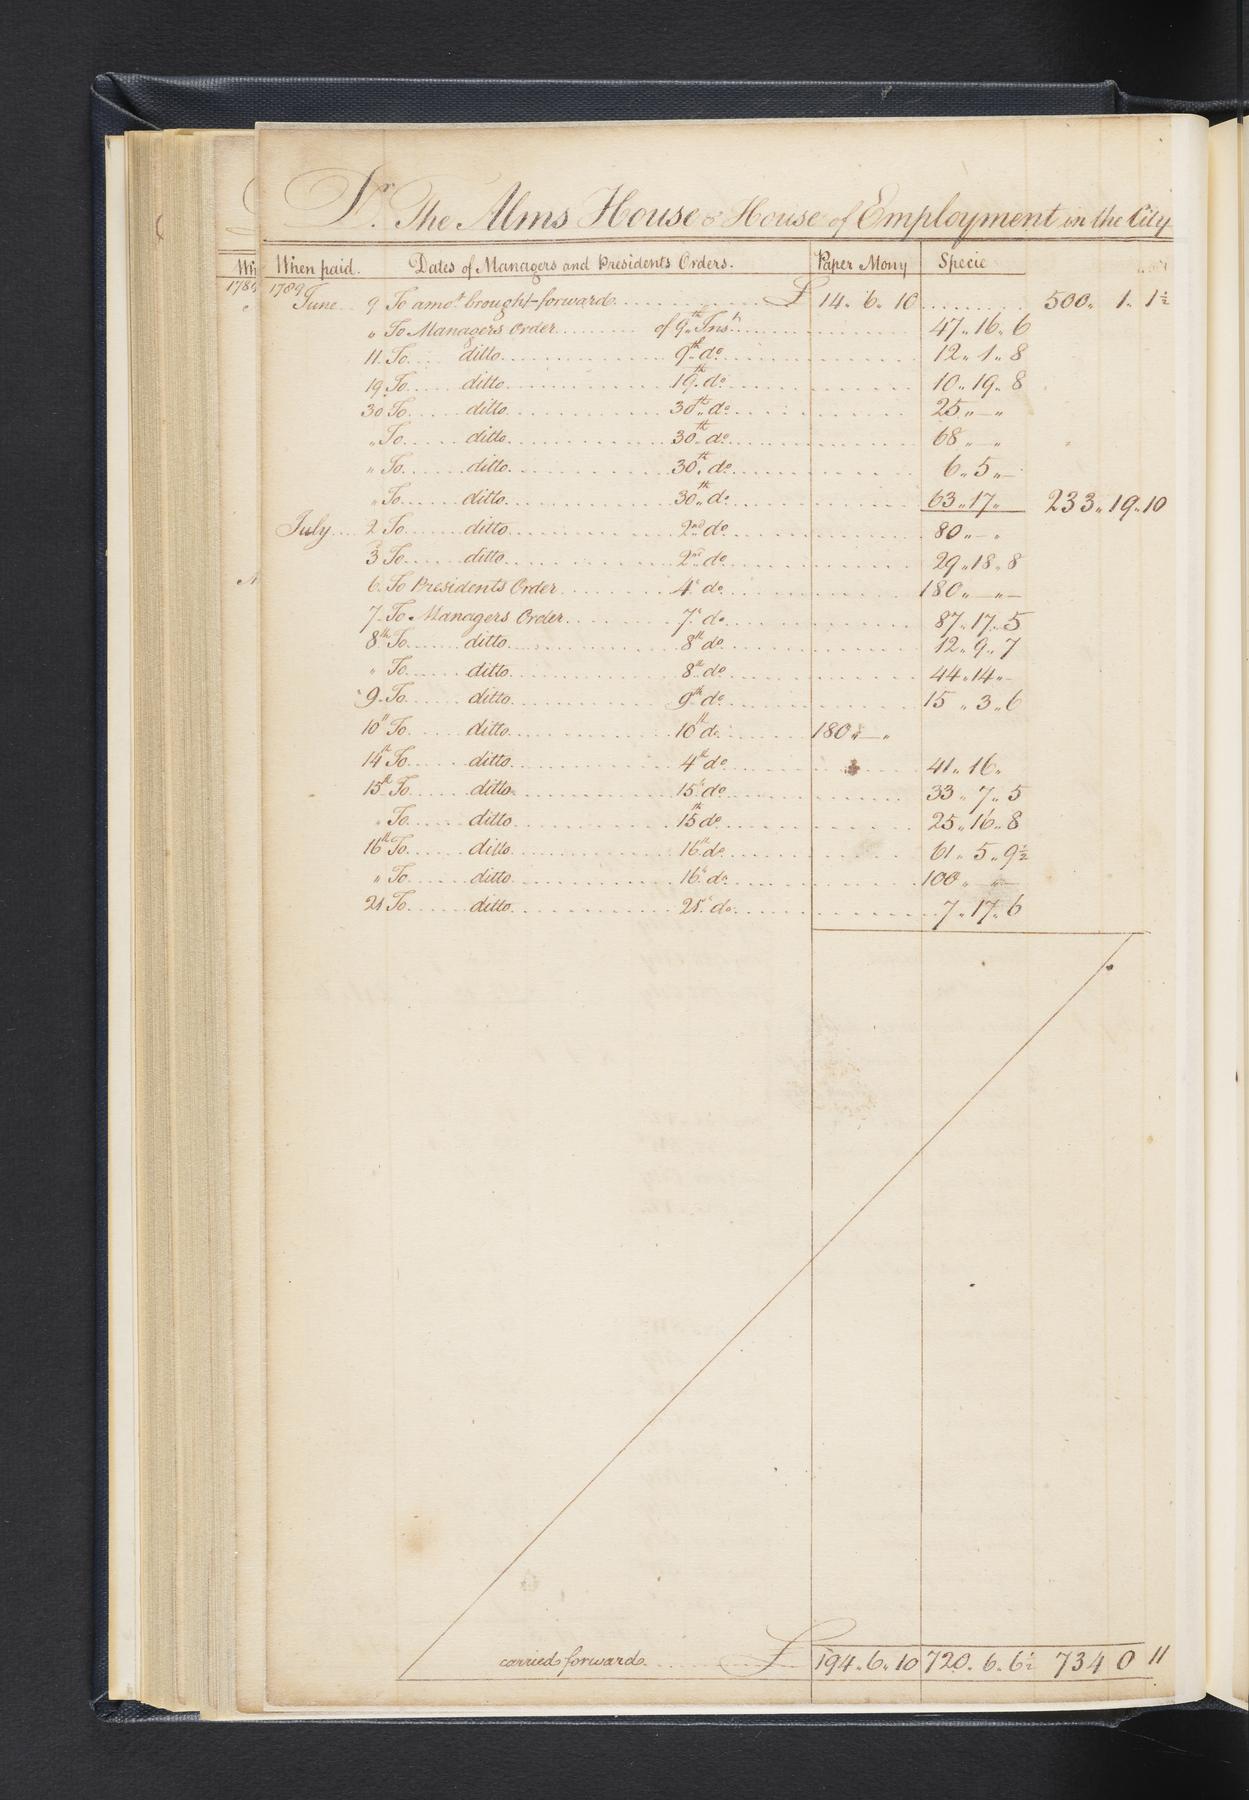 Dr. The Alms House & House of Employment in the City
When paid. Dates of Managers and Presidents Orders. Paper Mony Specie
1789
June 9 To amot. brought forward £ 14.. 6.. 10 500.. 1.. 1½
" To Managers Order of 9th Inst. 47.. 16.. 6
11 To ditto 9th do 12.. 1.. 8
19 To ditto 19th do 10.. 19.. 8
30 To ditto 30th do 25.. — "
" To ditto 30th do 68.. — "
" To ditto 30th do 6.. 5.. —
" To ditto 30th do 63.. 17.. 233.. 19.. 10
July 2 To ditto 2nd do 80.. — "
3 To ditto 2nd do 29.. 18.. 8
6 To Presidents Order 4th do 180.. — " —
7 To Managers Order 7th do 87.. 17.. 5
8th To ditto 8th do 12.. 9.. 7
" To ditto 8th do 44.. 14.. —
9 To ditto 9th do 15.. 3.. 6
10th To ditto 10th do 180.. — "
14th To ditto 4th do 41.. 16..
15th To ditto 15th do 33.. 7.. 5
" To ditto 15th do 25.. 16.. 8
16th To ditto 16th do 61.. 5.. 9½
" To ditto 16th do 100.. — " —
21 To ditto 21st do 7.. 17.. 6
carried forward £ 194.. 6.. 10 720.. 6.. 6½ 734 0 11